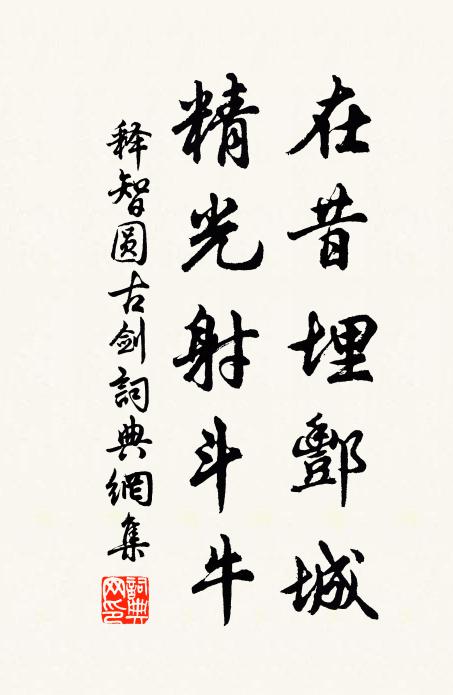 在昔埋酆城
精光射斗牛
释智圆古剑詞典網集
詞典网印